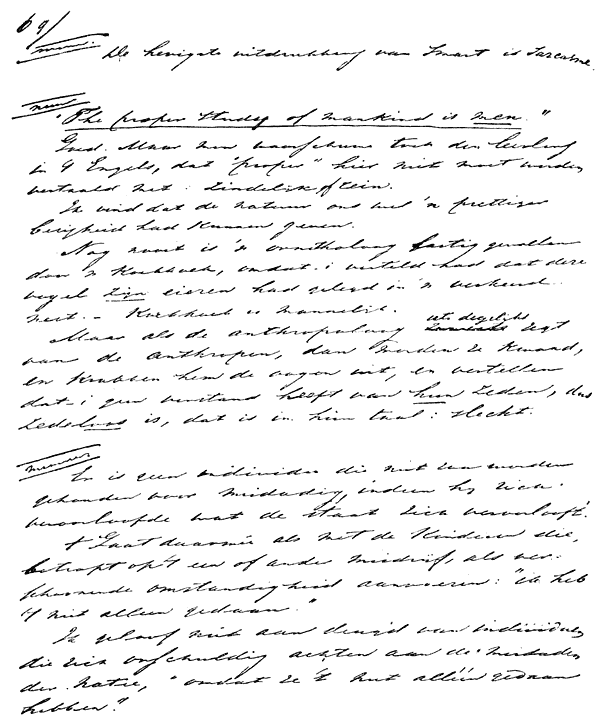 69/
nummer. De hevigste uitdrukking van smart is sarcasme.
nummer
"The proper study of mankind is men."
Goed. Maar men waarschuwe toch den leerling
in 't Engels, dat "proper" hier niet moet worden
vertaald met: zindelijk of rein.
Ik vind dat de natuur ons wel 'n prettiger
bezigheid had kunnen geven.
Nog nooit is 'n ornitholoog lastig gevallen
door 'n koekkoek, omdat-i verteld had dat deze
vogel zijn eieren had gelegd in 'n verkeerd
nest. - Koekkoek is mannelijk.
Maar als de anthropoloog iets dergelijks zegt
van de anthropen, dan worden ze kwaad,
en krabben hem de oogen uit, en vertellen
dat-i geen verstand heeft van hun zeden, dus
zedeloos is, dat is in hun taal: slecht.
nummer
Er is geen individu die niet zou worden
gehouden voor misdadig, indien hy zich
veroorloofde wat de staat zich veroorlooft.
't Gaat daarmêe als met de kinderen die,
betrapt op 't een of ander misdrijf, als ver-
schoonende omstandigheid aanvoeren: "ik heb
't niet alleen gedaan."
Ik geloof niet aan deugd van individuen
die zich onschuldig achten aan de misdaden
der Natie, "omdat ze 't niet alléén gedaan
hebben."